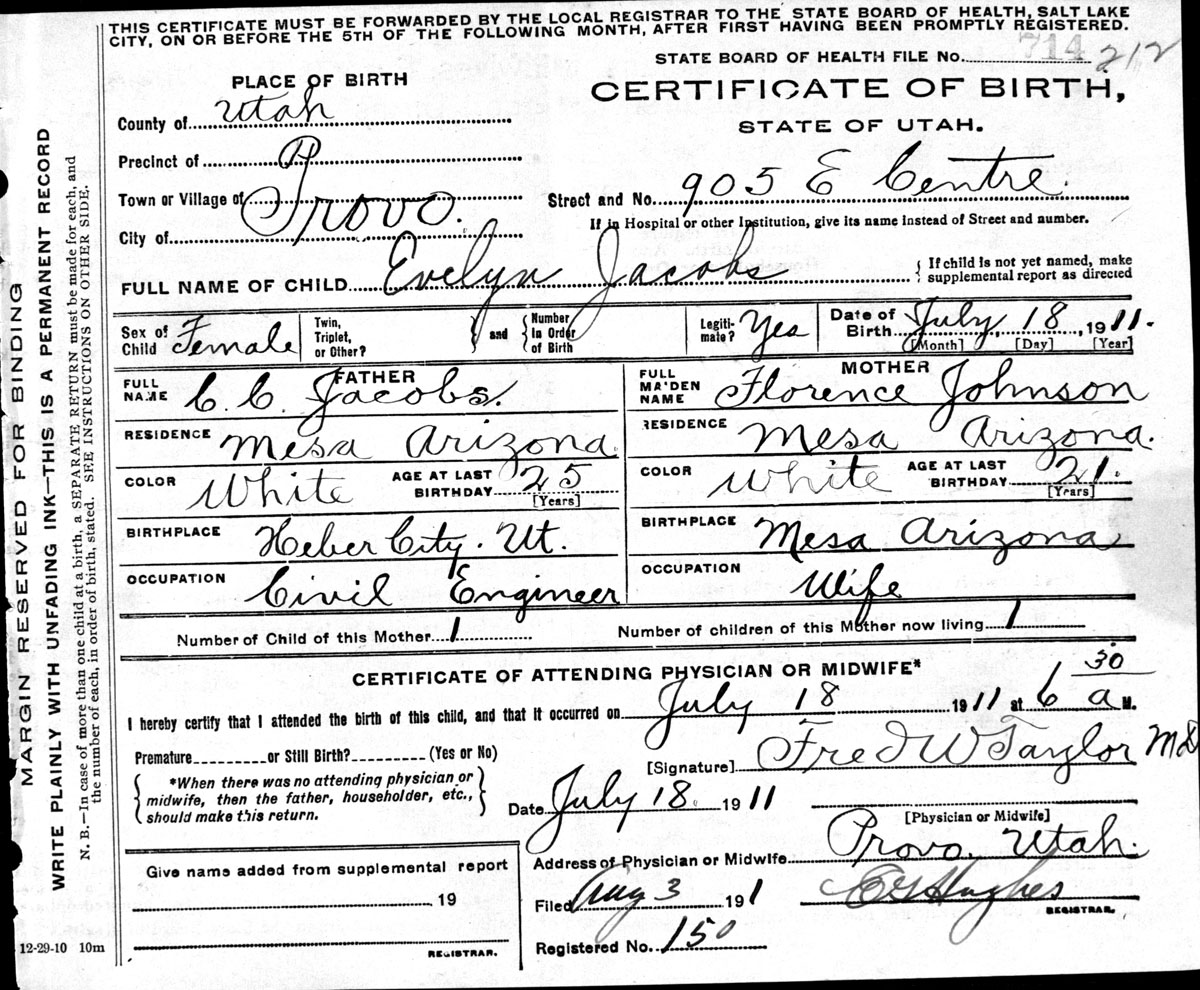 THIS CERTIFICATE MUST BE FORWARDED BY THE LOCAL REGISTRAR TO THE STATE BOARD OF HEALTH, SALT LAKE
CITY, ON OR BEFORE THE 5TH OF THE FOLLOWING MONTH, AFTER FIRST HAVING BEEN PROMPTLY REGISTERED.
STATE BOARD OF HEALTH FILE No. 714 212
PLACE OF BIRTH
CERTIFICATE OF BIRTH,
STATE OF UTAH.
County of Utah
Precinct of P
Town or Village of
City of Provo.
Street and No. 905 E Centre.
If in Hospital or other Institution, give its name instead of Street and number.
FULL NAME OF CHILD Evelyn Jacobs
{ If child is not yet named, make
supplemental report as directed
Sex of
Child Female
Twin,
Triplet,
or Other?
} and {
Number
in Order
of Birth
Legiti-
mate? Yes
Date of
Birth July, 18, 1911.
[Month] [Day] [Year]
FATHER
FULL
NAME C. C. Jacobs.
RESIDENCE Mesa Arizona.
COLOR White
AGE AT LAST
BIRTHDAY 25
[Years]
BIRTHPLACE Heber City. Ut.
OCCUPATION Civil Engineer
MOTHER
FULL
MAIDEN
NAME Florence Johnson
RESIDENCE Mesa Arizona.
COLOR White
AGE AT LAST
BIRTHDAY 21.
[Years]
BIRTHPLACE Mesa Arizona
OCCUPATION Wife
Number of Child of this Mother 1
Number of children of this Mother now living 1
CERTIFICATE OF ATTENDING PHYSICIAN OR MIDWIFE*
I hereby certify that I attended the birth of this child, and that it occurred on July 18 1911 at 6 30 a M.
Premature or Still Birth? (Yes or No)
{ *When there was no attending physician or
midwife, then the father, householder, etc.,
should make this return. }
[Signature] Fred W Taylor MD
Date July 18. 1911
[Physician or Midwife]
Address of Physician or Midwife Provo, Utah.
Give name added from supplemental report
19
REGISTRAR.
Filed Aug 3 191 1
Hughes
REGISTRAR.
Registered No. 150
12-29-10 10m
MARGIN RESERVED FOR BINDING
WRITE PLAINLY WITH UNFADING INK—THIS IS A PERMANENT RECORD
N. B.—In case of more than one child at a birth, a SEPARATE RETURN must be made for each, and
the number of each, in order of birth, stated. SEE INSTRUCTIONS ON OTHER SIDE.